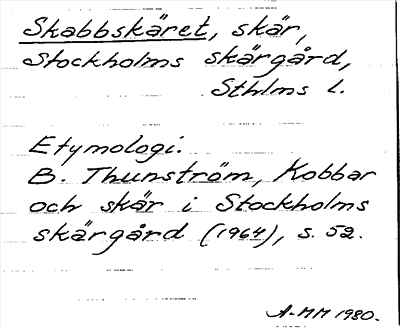 Skabbskäret, skär,
Stockholms skärgård,
Sthlms l.
Etymologi.
B. Thunström, Kobbar
och skär i Stockholms
skärgård (1964), s. 52.
A-MM 1980.